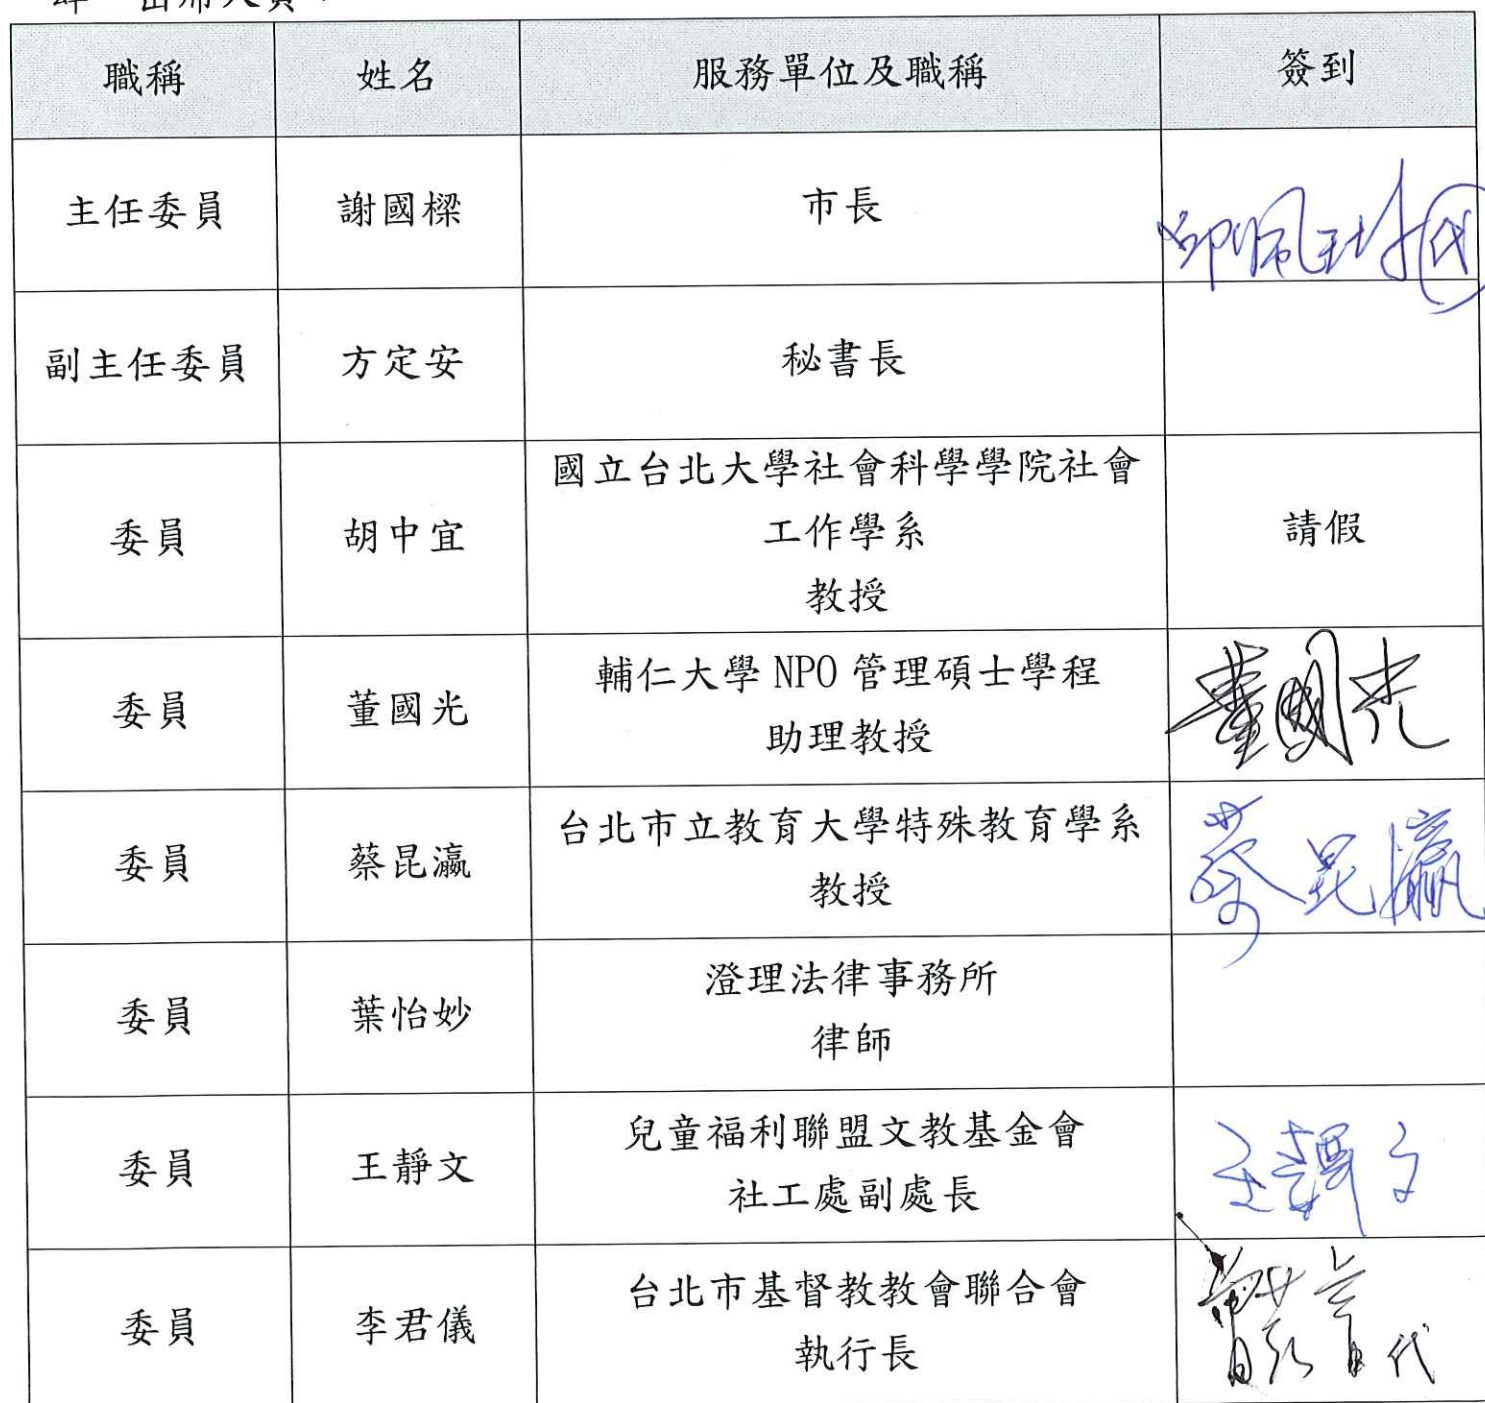 肆、出席人員：
職稱 姓名 服務單位及職稱 簽到
主任委員 謝國樑 市長 邱佩琳代
副主任委員 方定安 秘書長
委員 胡中宜 國立台北大學社會科學學院社會
工作學系
教授 請假
委員 董國光 輔仁大學 NPO 管理碩士學程
助理教授 董國光
委員 蔡昆瀛 台北市立教育大學特殊教育學系
教授 蔡昆瀛
委員 葉怡妙 澄理法律事務所
律師
委員 王靜文 兒童福利聯盟文教基金會
社工處副處長
委員 李君儀 台北市基督教教會聯合會
執行長 代